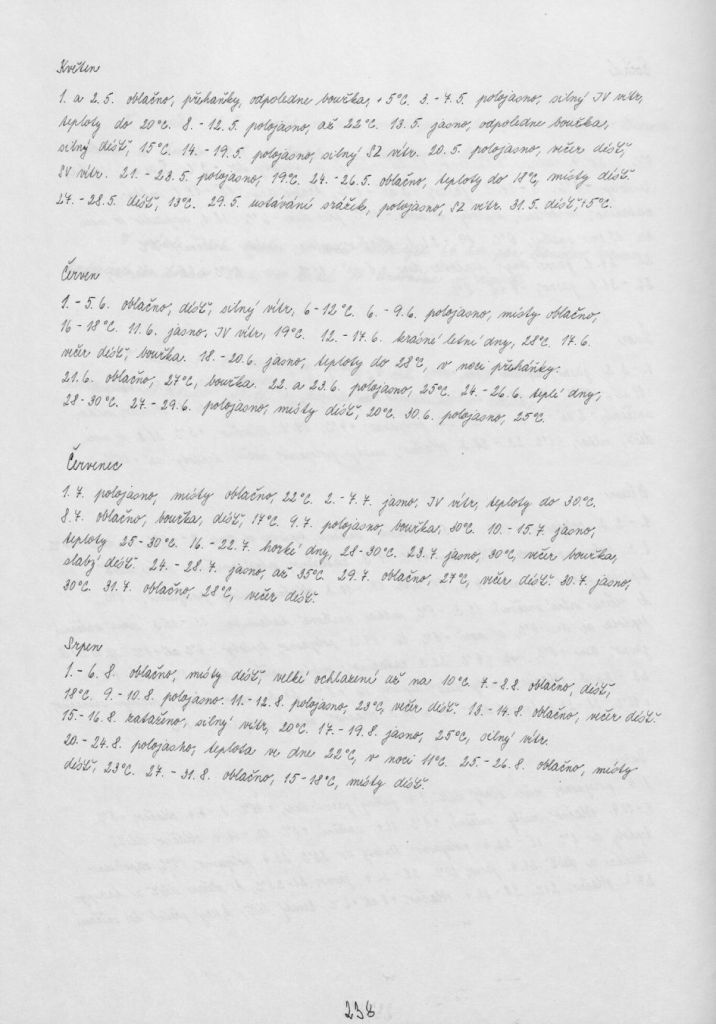 Květen
1. a 2.5. oblačno, přeháňky, odpoledne bouřka, +5°C. 3.-7.5. polojasno, silný JV vítr,
teploty do 20°C. 8.-12.5. polojasno, až 22°C. 13.5. jasno, odpoledne bouřka,
silný déšť, 15°C. 14.-19.5. polojasno, silný SZ vítr. 20.5. polojasno, večer déšť,
SV vítr. 21.-23.5. polojasno, 19°C. 24.-26.5. oblačno, teploty do 18°C, místy déšť.
27.-28.5. déšť, 13°C. 29.5. ustávání srážek, polojasno, SZ vítr. 31.5. déšť, +5°C.
Červen
1.-5.6. oblačno, déšť, silný vítr, 6-12°C. 6.-9.6. polojasno, místy oblačno,
16-18°C. 11.6. jasno, JV vítr, 19°C. 12.-17.6. krásné letní dny, 28°C. 17.6.
večer déšť, bouřka. 18.-20.6. jasno, teploty do 28°C, v noci přeháňky.
21.6. oblačno, 27°C, bouřka. 22. a 23.6. polojasno, 25°C. 24.-26.6. teplé dny,
28-30°C. 27.-29.6. polojasno, místy déšť, 20°C. 30.6. polojasno, 25°C.
Červenec
1.7. polojasno, místy oblačno, 22°C. 2.-7.7. jasno, JV vítr, teploty do 30°C.
8.7. oblačno, bouřka, déšť, 17°C. 9.7. polojasno, bouřka, 30°C. 10.-15.7. jasno,
teploty 25-30°C. 16.-22.7. horké dny, 28-30°C. 23.7. jasno, 30°C, večer bouřka,
slabý déšť. 24.-28.7. jasno, až 35°C. 29.7. oblačno, 27°C, večer déšť. 30.7. jasno,
30°C. 31.7. oblačno, 28°C, večer déšť.
Srpen
1.-6.8. oblačno, místy déšť, velké ochlazení až na 10°C. 7.-8.8. oblačno, déšť,
18°C. 9.-10.8. polojasno. 11.-12.8. polojasno, 23°C, večer déšť. 13.-14.8. oblačno, večer déšť.
15.-16.8. zataženo, silný vítr, 20°C. 17.-19.8. jasno, 25°C, silný vítr.
20.-24.8. polojasno, teplota ve dne 22°C, v noci 11°C. 25.-26.8. oblačno, místy
déšť, 23°C. 27.-31.8. oblačno, 15-18°C, místy déšť.
238